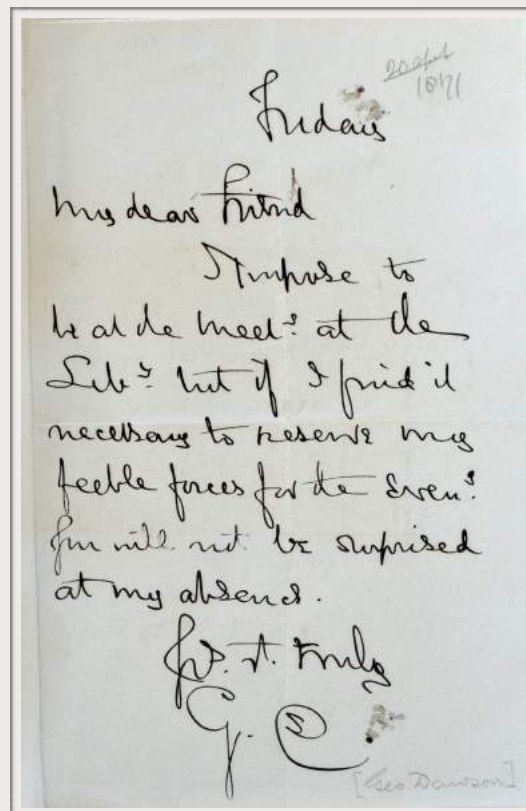 20 April
1871
Friday
My dear Friend
I propose to
be at the Meetg. at the
Liby. but if I find it
necessary to reserve my
feeble forces for the Eveng.
you will not be surprised
at my absence.
Yrs. v. Truly
G.
[Geo Dawson]